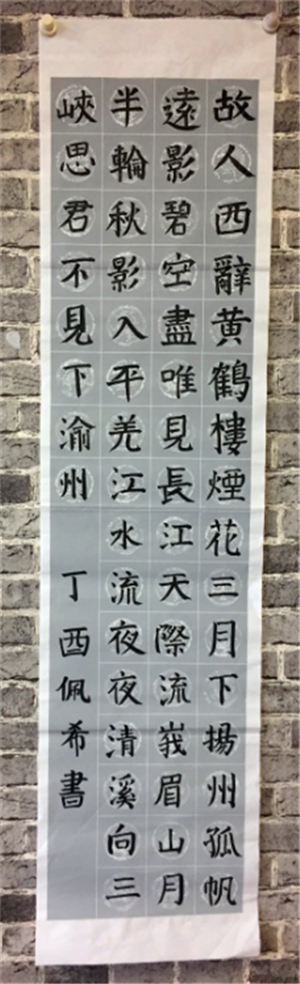 故人西辭黄鶴樓煙花三月下揚州孤帆
遠影碧空盡唯見長江天際流峩眉山月
半輪秋影入平羌江水流夜夜清溪向三
峽思君不見下渝州 丁酉佩希書